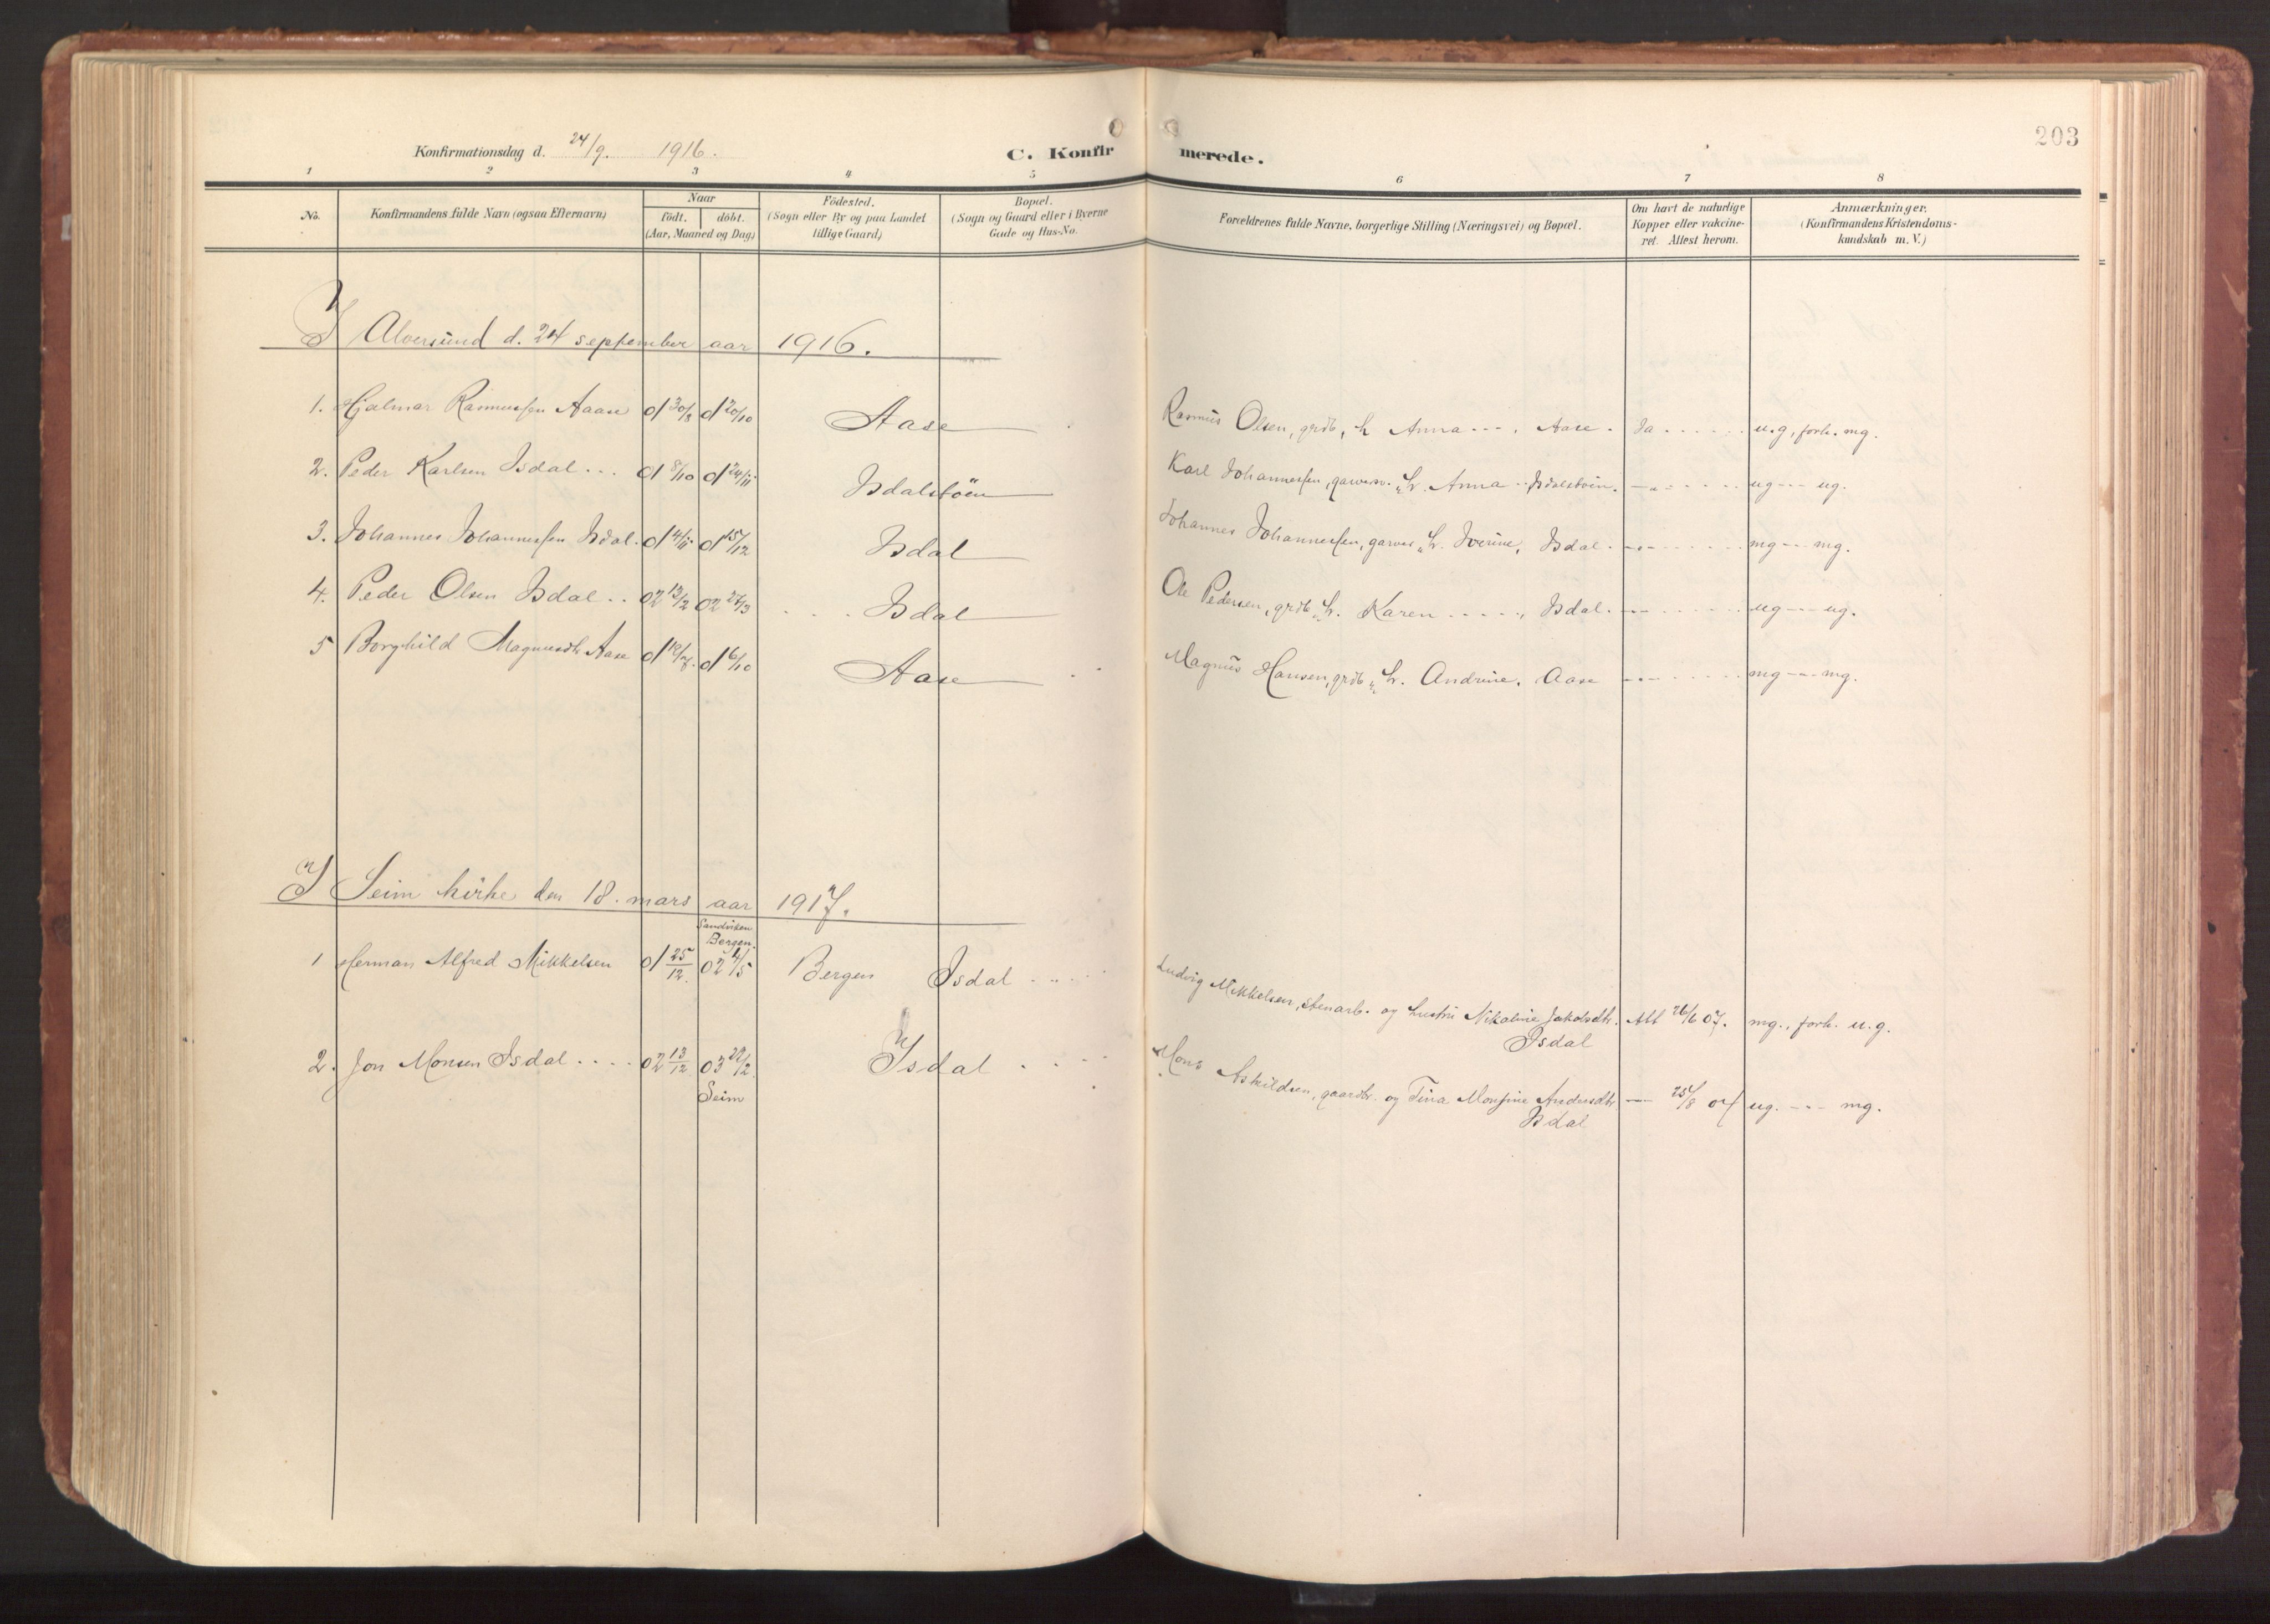 203
Konfirmationsdag d. 24/9. 1916.
C. Konfirmerede.
1 2 3 4 5 6 7 8
No. Konfirmandens fulde Navn (ogsaa Efternavn) Naar födt. döbt. (Aar, Maaned og Dag) Födested. (Sogn eller By og paa Landet tillige Gaard) Bopæl. (Sogn og Gaard eller i Byerne Gade og Hus-No. Forældrenes fulde Navne, borgerlige Stilling (Næringsvei) og Bopæl. Om havt de naturlige Kopper eller vakcineret. Attest herom. Anmærkninger. (Konfirmandens Kristendomskundskab m. V.)
I Alversund d. 24 september aar 1916.
1. Hjalmar Rasmussen Aase 01 30/8 01 20/10 Aase Rasmus Olsen, grdb, h Anna - - - , Aase. Ja . . . . . . u.g, forh. mg.
2. Peder Karlsen Isdal . . . 01 8/10 01 24/11 Isdalstöen Karl Johannessen, garversv. h. Anna - - Isdalstöen. - „ - - - - - ug - - - ug.
3. Johannes Johannessen Isdal. 01 4/11 01 15/12 Isdal Johannes Johannessen, garver h. Iverine, Isdal. - „ - - - - - mg - - - mg.
4. Peder Olsen Isdal . . 02 13/2 02 27/3 . . . Isdal Ole Pedersen, grdb h. Karen . . . . . , Isdal. - „ - - - - - ug - - - ug.
5 Borghild Magnusdtr Aase 01 19/7. 01 6/10 Aase Magnus Hansen, grdb h. Andrine. Aase - „ - - - - - mg - - - mg.
I Seim kirke den 18. mars aar 1917.
Sandviken
Bergen.
1 Herman Alfred Mikkelsen 01 25/12. 02 4/5 Bergen Isdal . . . . . Ludvig Mikkelsen, stenarb. og hustru Nikoline Jakobsdtr. Isdal Att 26/6 07. mg., forh. u.g.
2. Jon Monsen Isdal . . . . 02 13/12 03 22/2. Seim Isdal . . . . Mons Askildsen, gaardbr. og Tina Monsine Andersdtr Isdal — 25/8 04 ug. - - - mg.